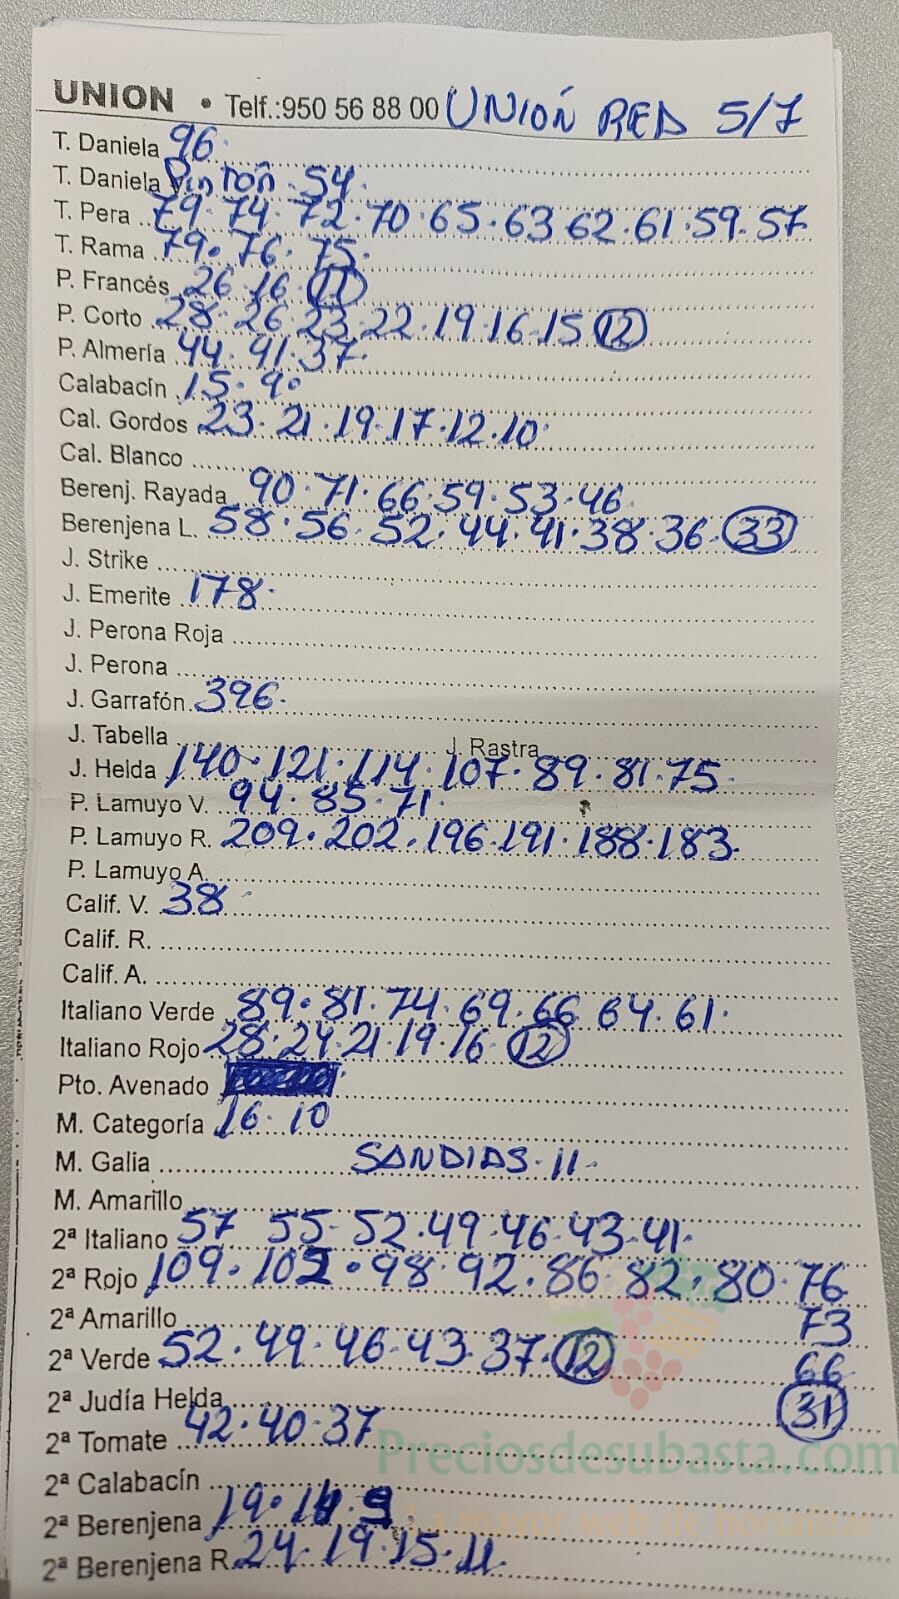 UNION • Telf.:950 56 88 00 UNIÓN RED 5/7
T. Daniela 96.
T. Daniela Pinton . 54.
T. Pera 79. 74. 72. 70. 65. 63 62. 61. 59. 57
T. Rama 79. 76. 75.
P. Francés 26. 16. 11
P. Corto 28. 26 23. 22. 19. 16. 15 12
P. Almería 44. 41. 37.
Calabacín 15. 9.
Cal. Gordos 23. 21. 19. 17. 12. 10.
Cal. Blanco
Berenj. Rayada 90. 71. 66. 59. 53. 46
Berenjena L. 58. 56. 52. 44. 41. 38. 36. 33
J. Strike
J. Emerite 178.
J. Perona Roja
J. Perona
J. Garrafón 396.
J. Tabella J. Rastra
J. Helda 140. 121. 114. 107. 89. 81. 75.
P. Lamuyo V. 94. 85. 71.
P. Lamuyo R. 209. 202. 196. 191. 188. 183.
P. Lamuyo A.
Calif. V. 38
Calif. R.
Calif. A.
Italiano Verde 89. 81. 74. 69. 66 64. 61.
Italiano Rojo 28. 24. 21. 19. 16. 12
Pto. Avenado
M. Categoría 16. 10
M. Galia SANDIAS. 11.
M. Amarillo
2ª Italiano 57 55. 52. 49. 46. 43. 41.
2ª Rojo 109. 102. 98. 92. 86 82. 80. 76
2ª Amarillo 73
2ª Verde 52. 49. 46. 43. 37. 12 66
2ª Judía Helda 31
2ª Tomate 42. 40. 37
Preciosdesubasta.com
2ª Calabacín
2ª Berenjena 19. 9
La mayor web de hortalizas
2ª Berenjena R. 24. 19. 15. 11.